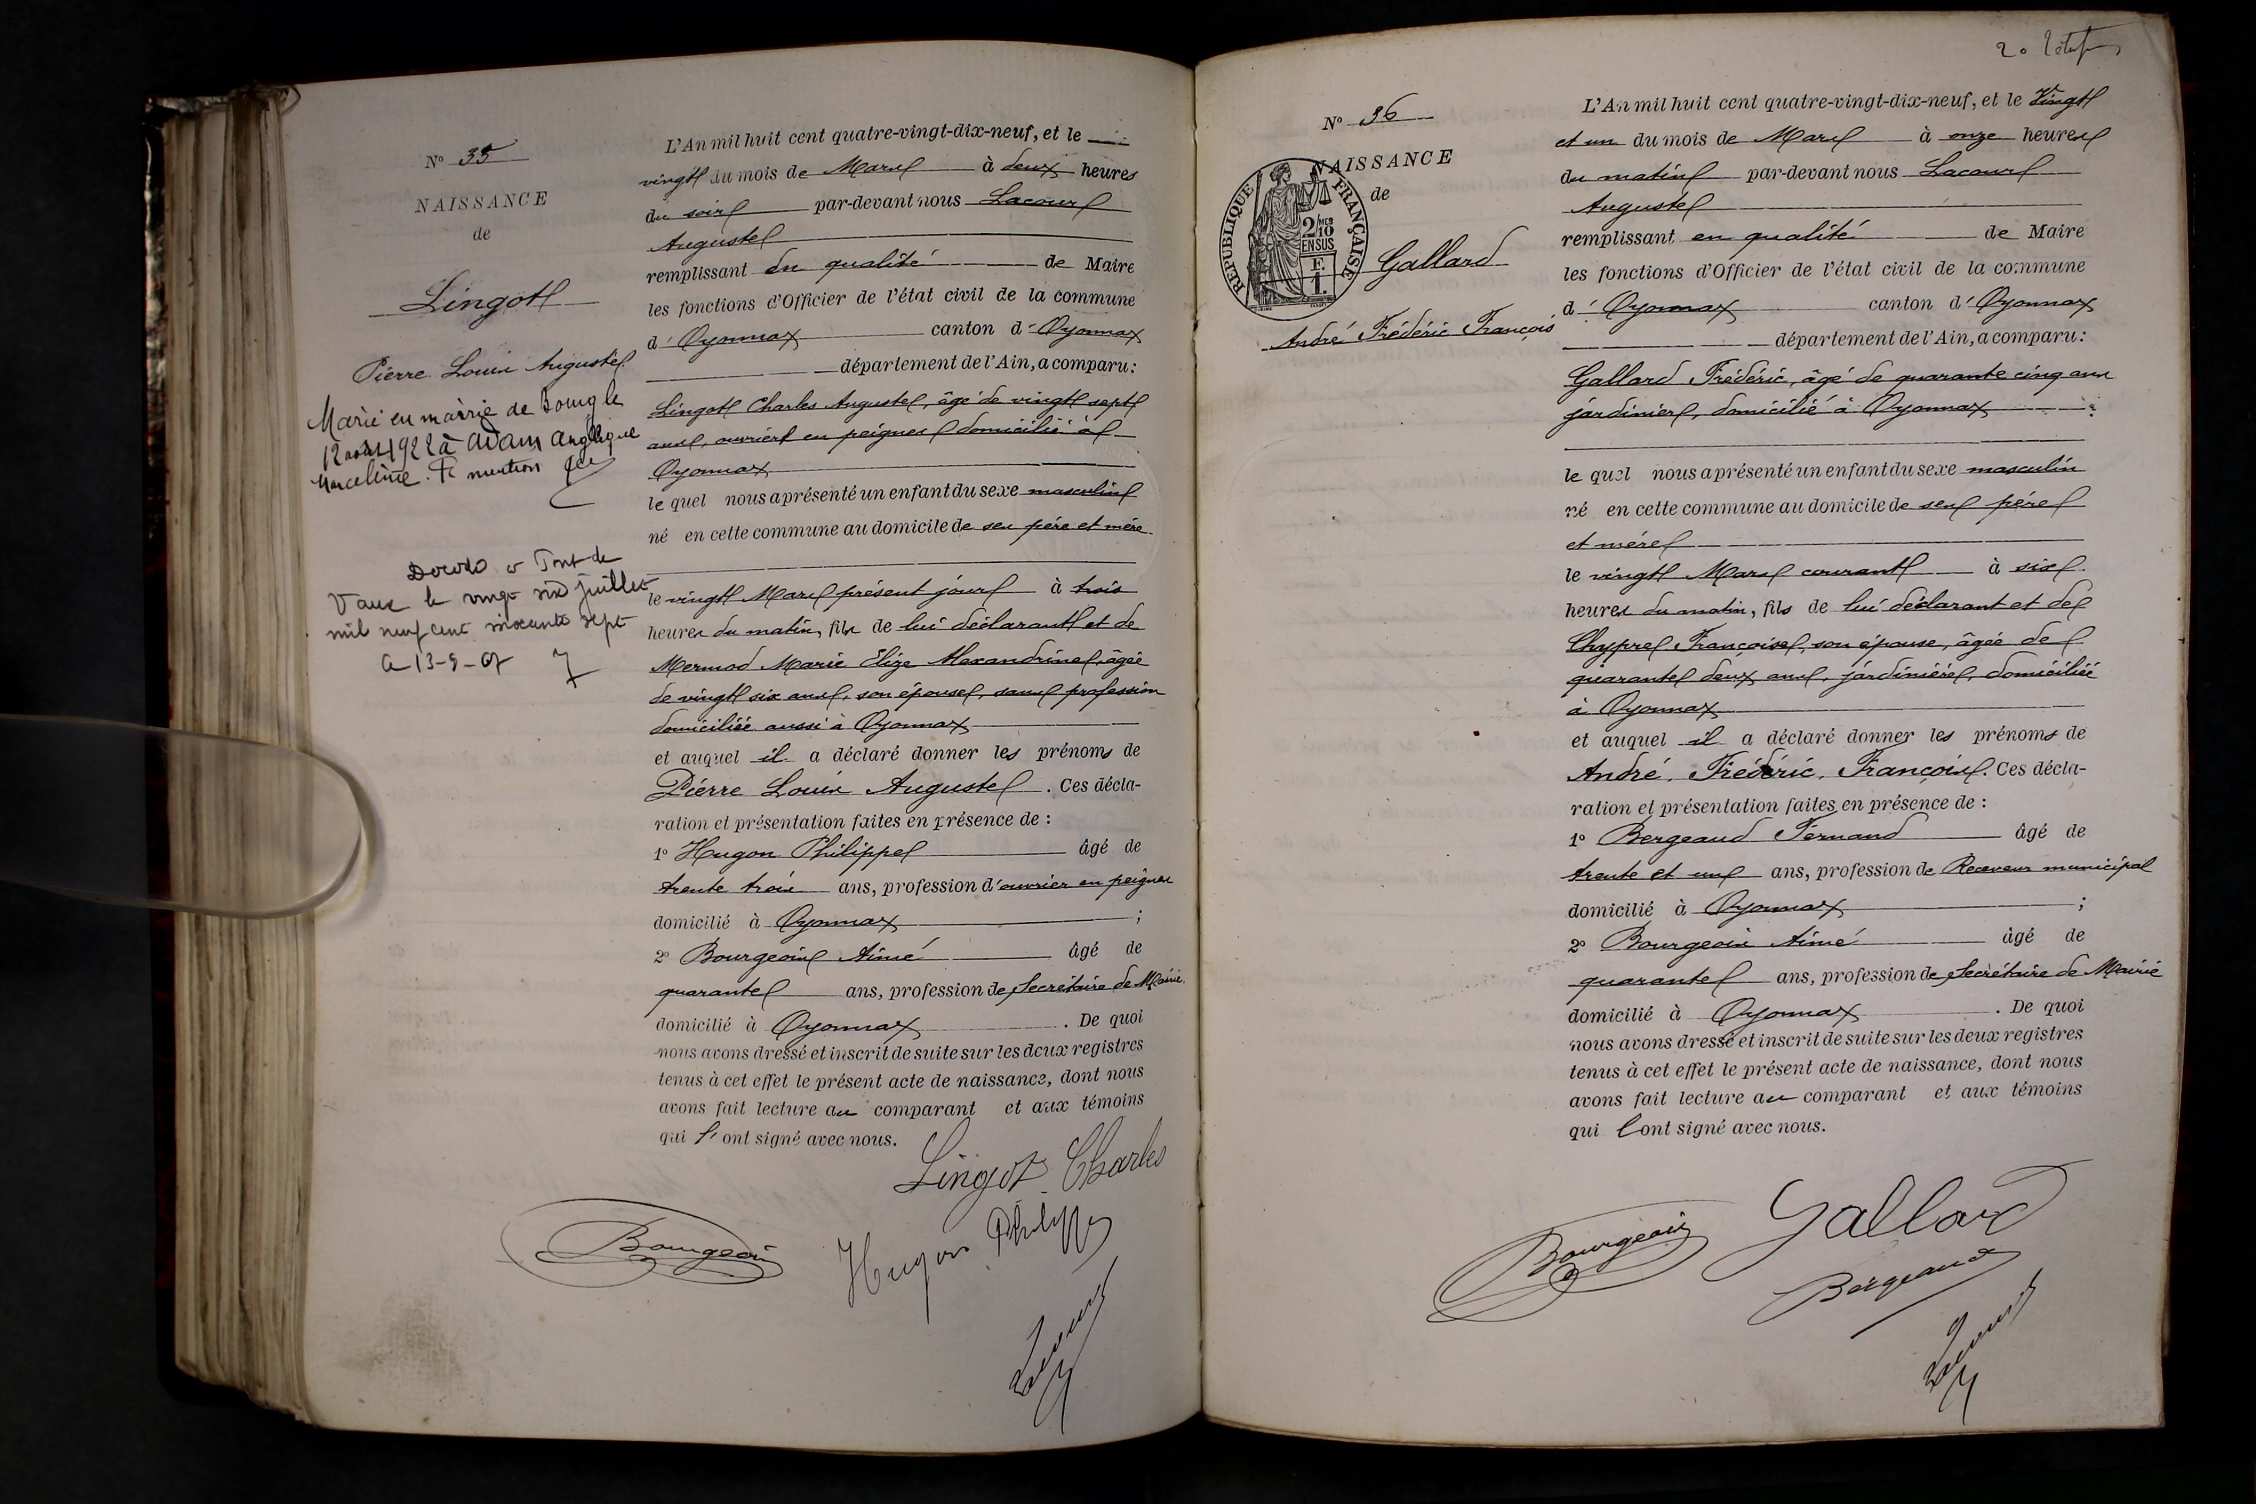 N° 35
NAISSANCE
de
Lingot
Pierre Louis Auguste
Marié en mairie de Bourg le
12 août 1922 à Adam Angélique
Marceline.
Décédé à Pont de
Vaux le vingt six juillet
mil neuf cent soixante sept
L'An mil huit cent quatre-vingt-dix-neuf, et le
vingt du mois de Mars à deux heures
du soir par-devant nous Lacour
Auguste
remplissant en qualité de Maire
les fonctions d'Officier de l'état civil de la commune
d'Oyonnax canton d'Oyonnax
département de l'Ain, a comparu:
Lingot Charles Auguste, âgé de vingt sept
ans, ouvrier en peignes domicilié à
Oyonnax
le quel nous a présenté un enfant du sexe masculin
né en cette commune au domicile de ses père et mère
le vingt Mars présent jour à trois
heures du matin, fils de lui déclarant et de
Mermod Marie Elize Alexandrine, âgée
de vingt six ans, son épouse, sans profession
domiciliée aussi à Oyonnax
et auquel il a déclaré donner les prénoms de
Pierre Louis Auguste. Ces décla-
ration et présentation faites en présence de :
1° Hugon Philippe âgé de
trente trois ans, profession d'ouvrier en peignes
domicilié à Oyonnax ;
2° Bourgeois Aimé âgé de
quarante ans, profession de Secrétaire de Mairie
domicilié à Oyonnax. De quoi
nous avons dressé et inscrit de suite sur les deux registres
tenus à cet effet le présent acte de naissance, dont nous
avons fait lecture au comparant et aux témoins
qui l'ont signé avec nous.
Lingot Charles
Bourgeois
Hugon Philippe
Lacour
N° 36
NAISSANCE
de
RÉPUBLIQUE FRANÇAISE
2/10 MES
EN SUS
F.
1.
Gallard
André Frédéric François
L'An mil huit cent quatre-vingt-dix-neuf, et le Vingt
et un du mois de Mars à onze heures
du matin par-devant nous Lacour
Auguste
remplissant en qualité de Maire
les fonctions d'Officier de l'état civil de la commune
d'Oyonnax canton d'Oyonnax
département de l'Ain, a comparu:
Gallard Frédéric, âgé de quarante cinq ans
jardinier, domicilié à Oyonnax ;
le quel nous a présenté un enfant du sexe masculin
né en cette commune au domicile de ses père
et mère
le vingt Mars courant à six
heures du matin, fils de lui déclarant et de
Chypre Françoise, son épouse, âgée de
quarante deux ans, jardinière, domiciliée
à Oyonnax
et auquel il a déclaré donner les prénoms de
André, Frédéric, François. Ces décla-
ration et présentation faites en présence de :
1° Bergeaud Fernand âgé de
trente et un ans, profession de Receveur municipal
domicilié à Oyonnax ;
2° Bourgeois Aimé âgé de
quarante ans, profession de Secrétaire de Mairie
domicilié à Oyonnax. De quoi
nous avons dressé et inscrit de suite sur les deux registres
tenus à cet effet le présent acte de naissance, dont nous
avons fait lecture au comparant et aux témoins
qui l'ont signé avec nous.
Bourgeois
Gallard
Bergeaud
Lacour